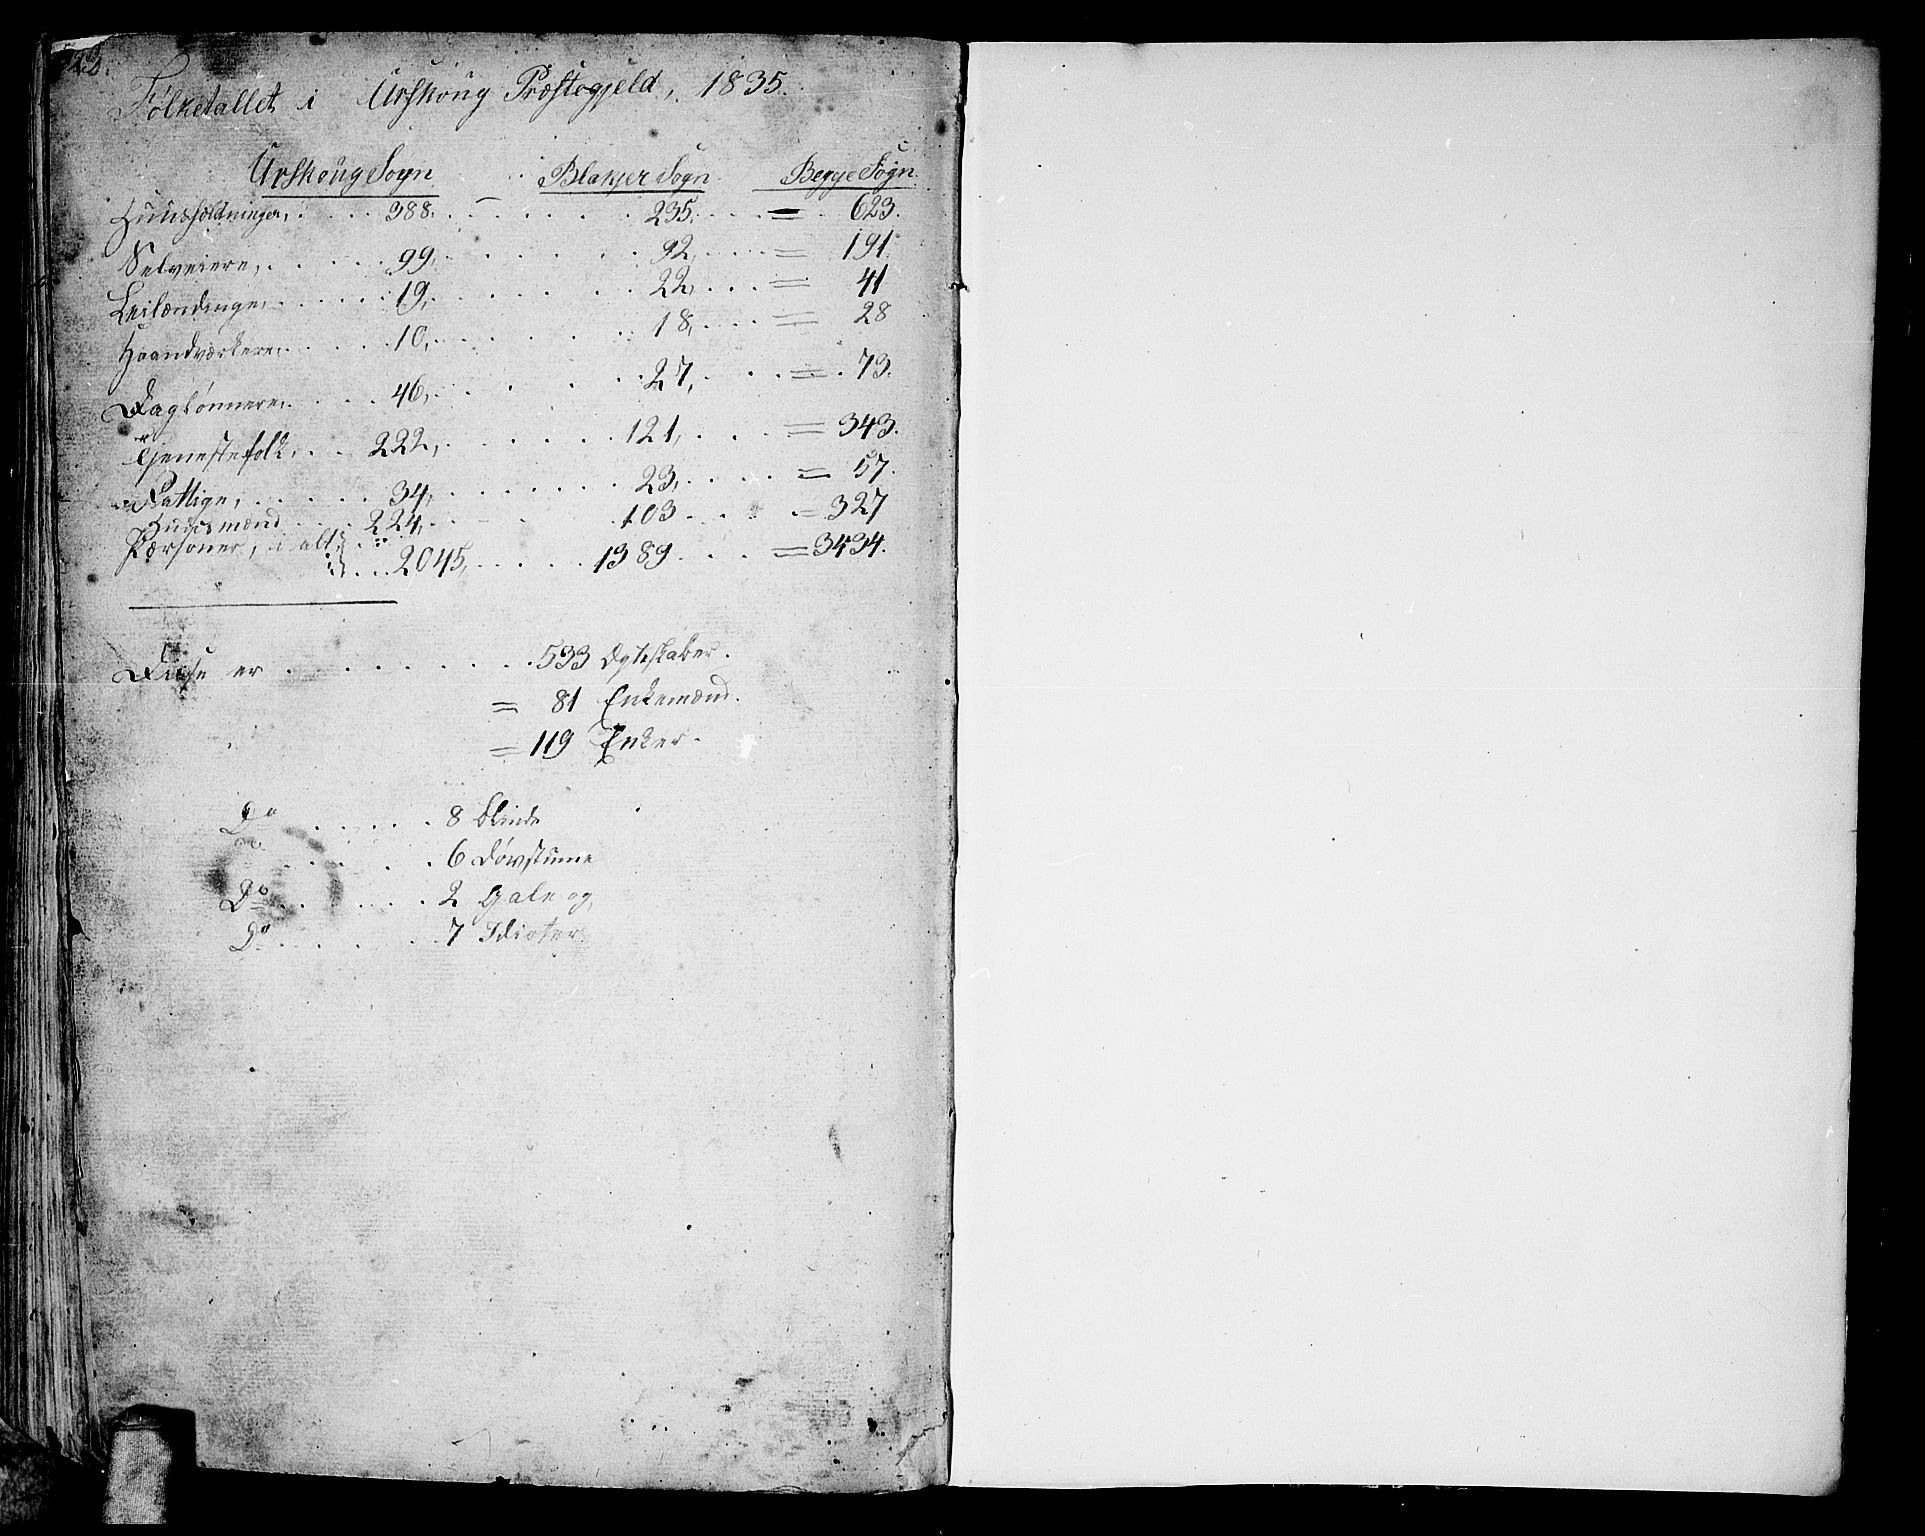 Folketallet i Urskoug Præstegjeld, 1835.
Urskoug Sogn Blakjer Sogn Begge Sogn
Huusholdninger, 388, 235, = 623.
Selveiere, 99, 92, = 191.
Leilændinge, 19, 22, = 41
Haandværkere, 10, 18, = 28
Daglønnere, 46, 27, = 73.
Tjenestefolk, 222, 121, = 343.
Fattige, 34, 23, = 57.
Huusmænd 224, 103 = 327
Personer, i alt 2045, 1389 = 3434.
Disse er 533 Ægteskaber.
= 81 Enkemænd.
= 119 Enker.
Do 8 blinde
6 døvstumme
Do 2 gale og
Do 7 Idioter